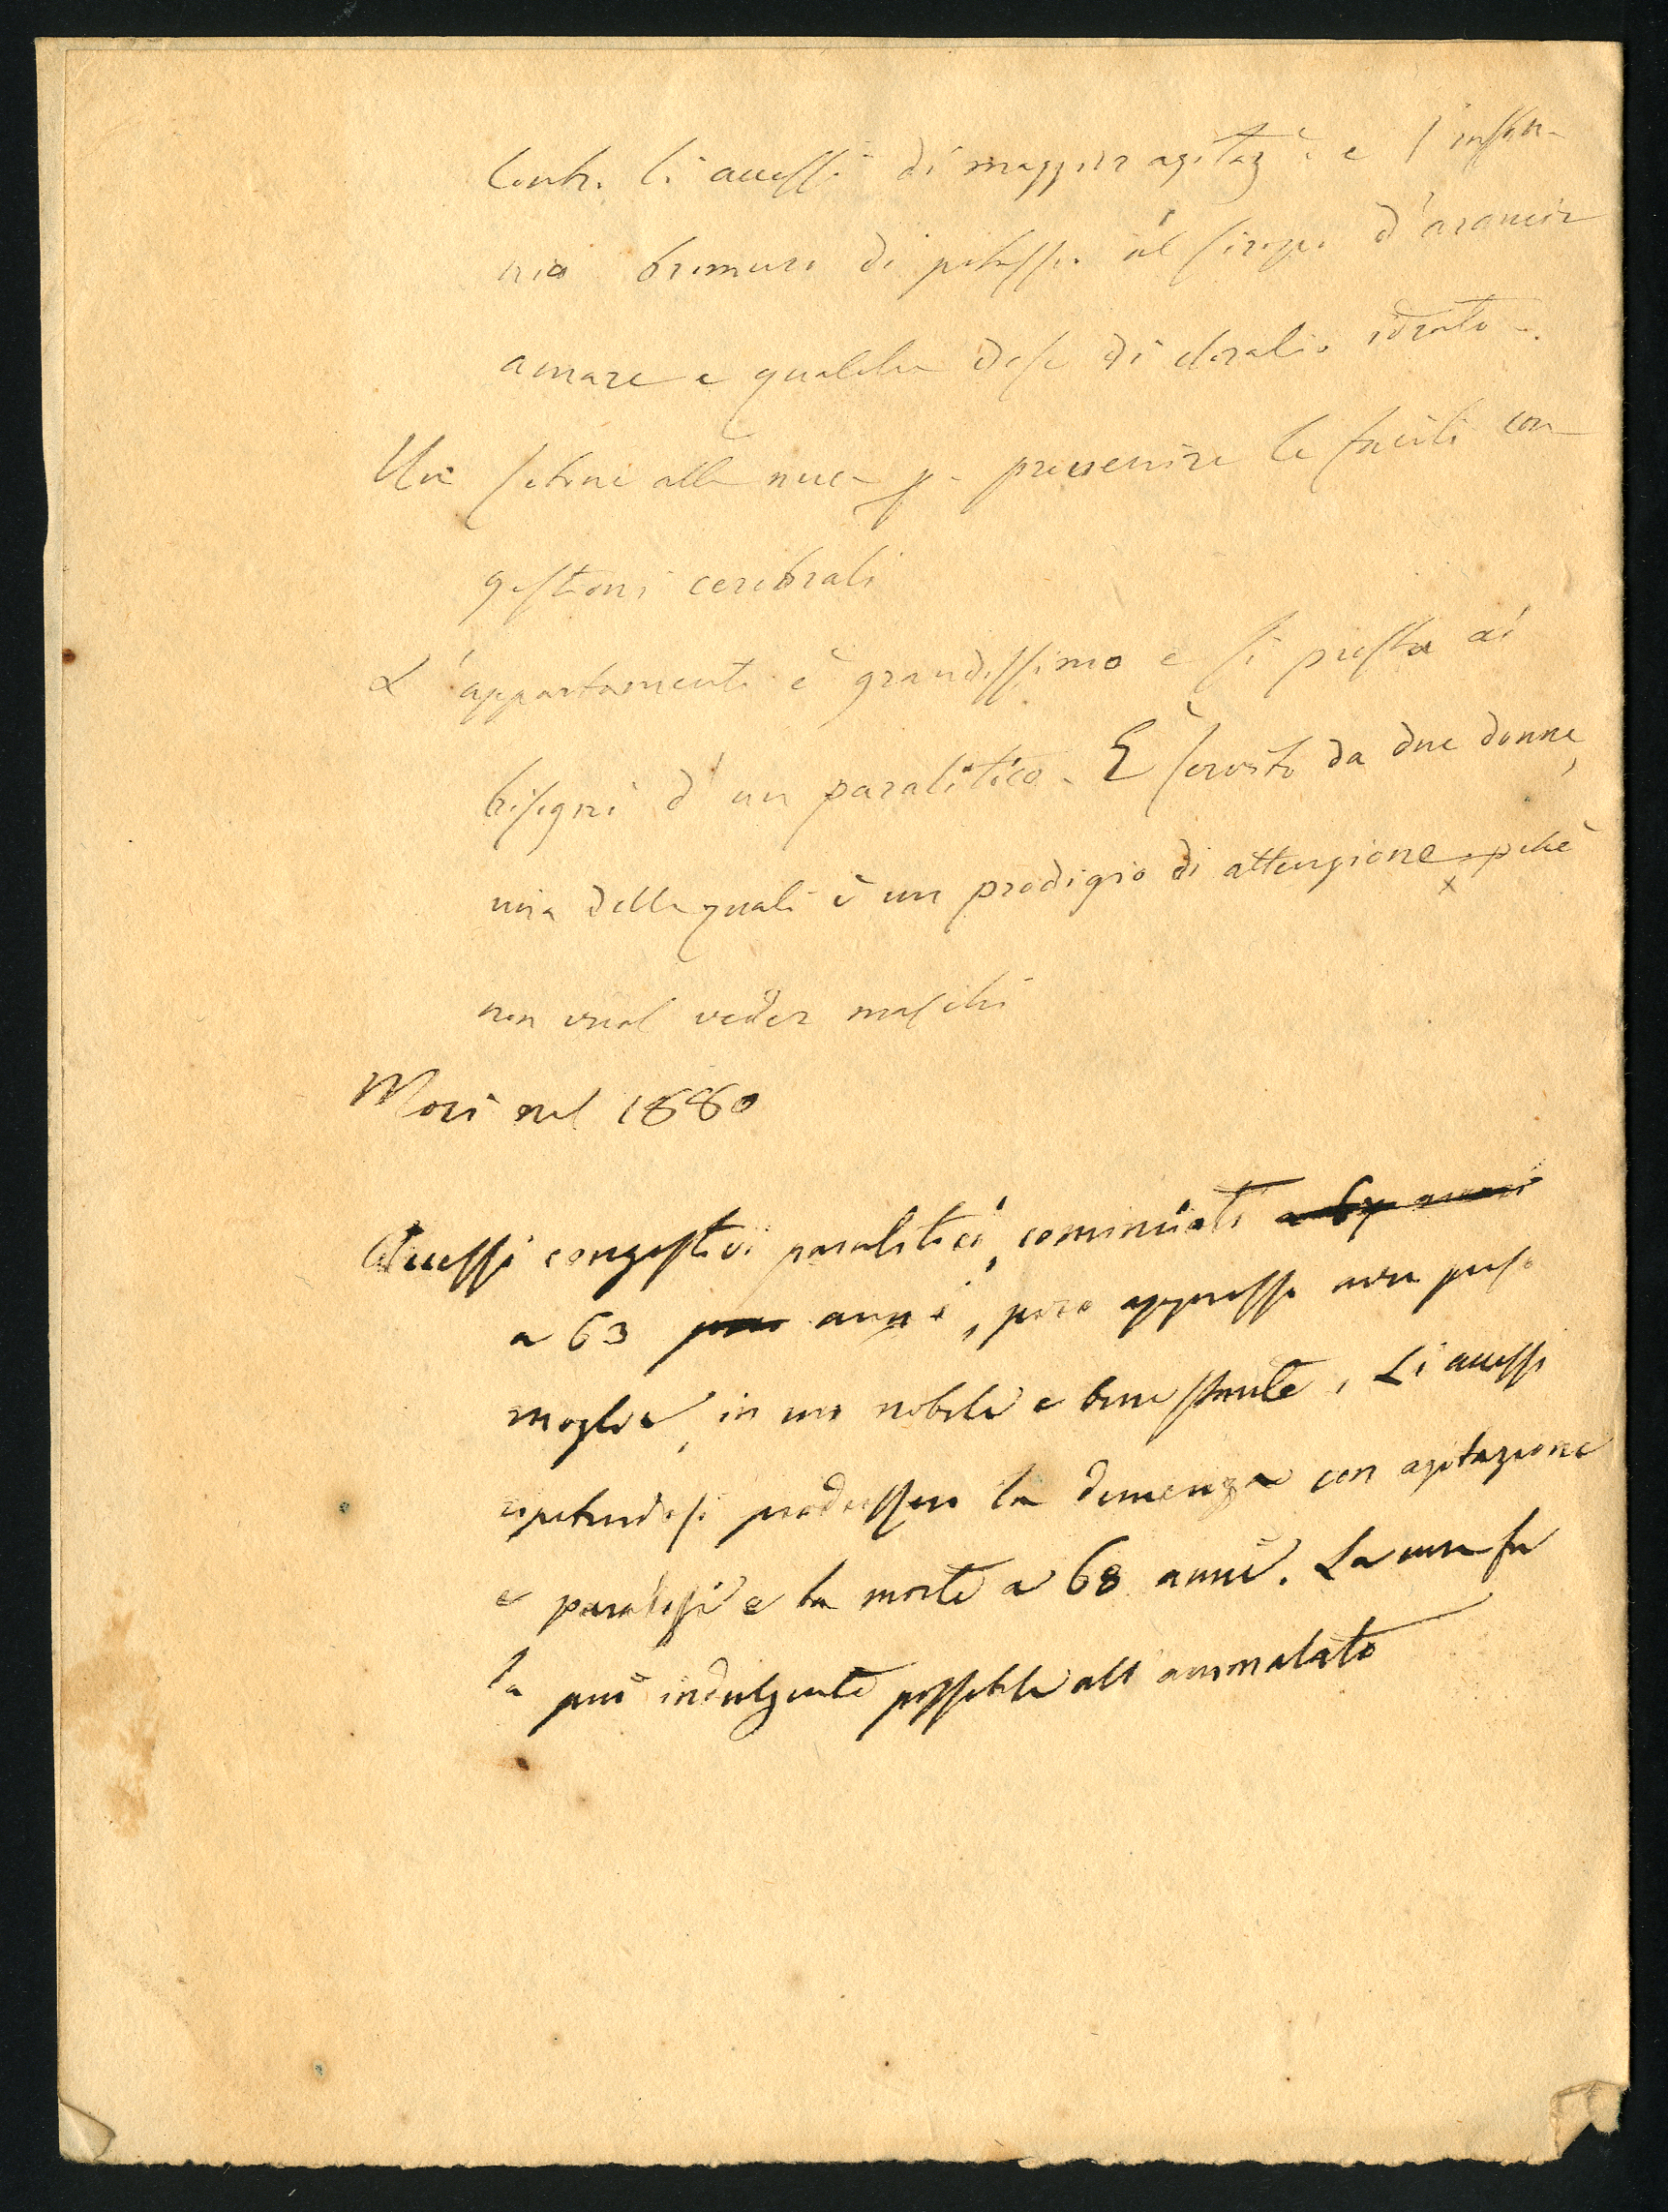 Contro li accessi di maggior agitaz.e e l'inson-
nia bromuro di potassa al siropo d'arancio
amare e qualche dose di cloralio idrato.
Un setone alla nuca p. prevenire le facili con
gestioni cerebrali
L'appartamento è grandissimo e si presta ai
bisogni d'un paralitico. È servito da due donne,
una delle quali è un prodigio di attenzione, pchè
x
non vuol veder maschi
Morì nel 1880
Accessi congestivi paralitici, cominciati a 67 anni
a 63 anni, poco appresso aver preso
moglie, in un nobile e benestante. Li accessi
ripetendosi produssero la demenza con agitazione
e paralisi e la morte a 68 anni. La cura fu
la più indulgente possibile all'ammalato